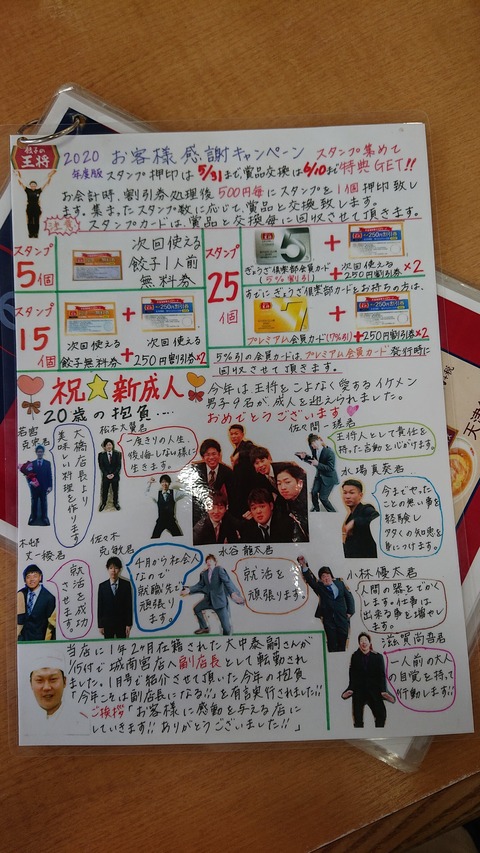 餃子の
王将
2020 お客様感謝キャンペーン スタンプ集めて
年度版 スタンプ押印は5/31まで、賞品交換は6/10まで特典GET!!
お会計時、割引券処理後500円毎にスタンプを1個押印致し
ます。集まったスタンプ数に応じて賞品と交換致します。
注意 スタンプカードは、賞品と交換毎に回収させて頂きます。
スタンプ
5個
次回使える
餃子1人前
無料券
スタンプ
15個
次回使える
餃子無料券
+
次回使える
250円割引券×2
スタンプ
25個
ぎょうざ倶楽部会員カード
(5%割引)
+
次回使える
250円割引券×2
すでにぎょうざ倶楽部カードをお持ちの方は、
プレミアム会員カード(7%割引)+250円割引券×2
5%引の会員カードは、プレミアム会員カード発行時に
回収させて頂きます。
祝☆新成人
20歳の抱負....
今年は王将をこよなく愛するイケメン
男子9名が、成人を迎えられました。
おめでとうございます
若宮
克宏君
大橋店長より
美味しい料理を作ります
松本大賢君
一度きりの人生、
後悔しない様に
生きます。
佐々間一球君
王将人として責任を
持った言動を心がけます。
水場真葵君
今までやった
ことの無い事を
経験し
多くの知恵を
身につけます。
木邨
丈一稜君
就活を成功
させます。
佐々木
克敏君
4月から社会人
なので
就職先で
頑張り
ます。
水谷龍太君
就活を
頑張ります。
小林優太君
人間の器をでかく
します。仕事は
出来る事を増やし
ます。
滋賀尚吾君
一人前の大人
の自覚を持って
行動します!!
当店に1年2ヶ月在籍された大中泰嗣さんが
1/15付で城南宮店へ副店長として転勤され
ました。1月号で紹介させて頂いた今年の抱負
「今年こそは副店長になる!!」を有言実行されました!!
ご挨拶「お客様に感動を与える店に
していきます!! ありがとうございました!!」